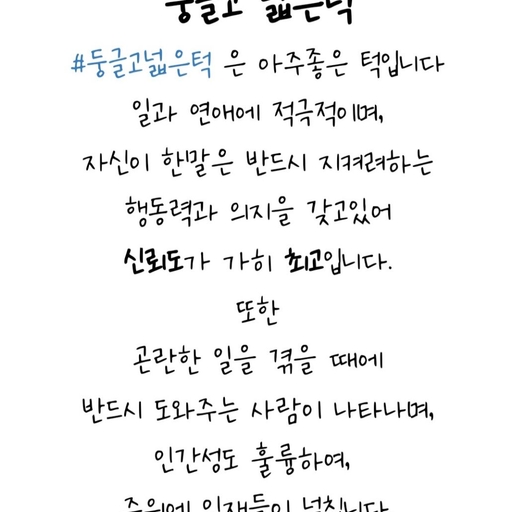 둥글고 넓은턱
#둥글고넓은턱 은 아주좋은 턱입니다
일과 연애에 적극적이며,
자신이 한말은 반드시 지켜려하는
행동력과 의지을 갖고있어
신뢰도가 가히 최고입니다.
또한
곤란한 일을 겪을 때에
반드시 도와주는 사람이 나타나며,
인간성도 훌륭하여,
주위에 인재들이 넘칩니다